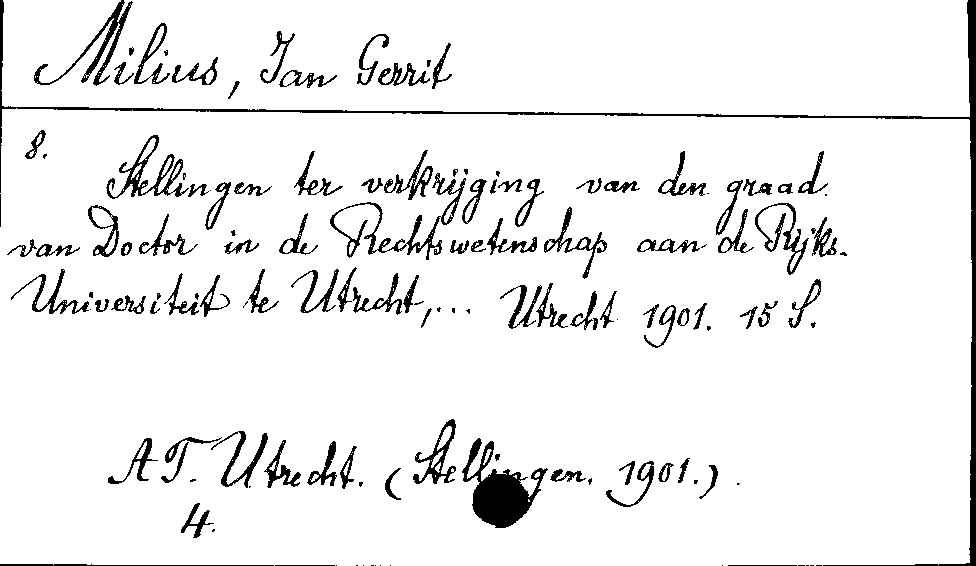 Milius, Jan Gerrit
8.
Stellingen ter verkrijging van den graad
van Doctor in de Rechtswetenschap aan de Rijks-
Universiteit te Utrecht,... Utrecht 1901. 15 S.
AT. Utrecht. (Stellingen. 1901.)
4.